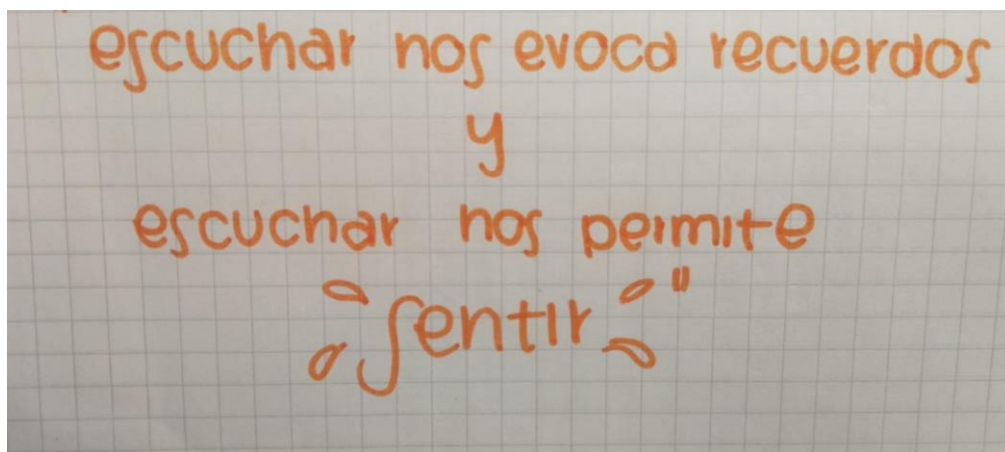 escuchar nos evoca recuerdos
y
escuchar nos permite
sentir"